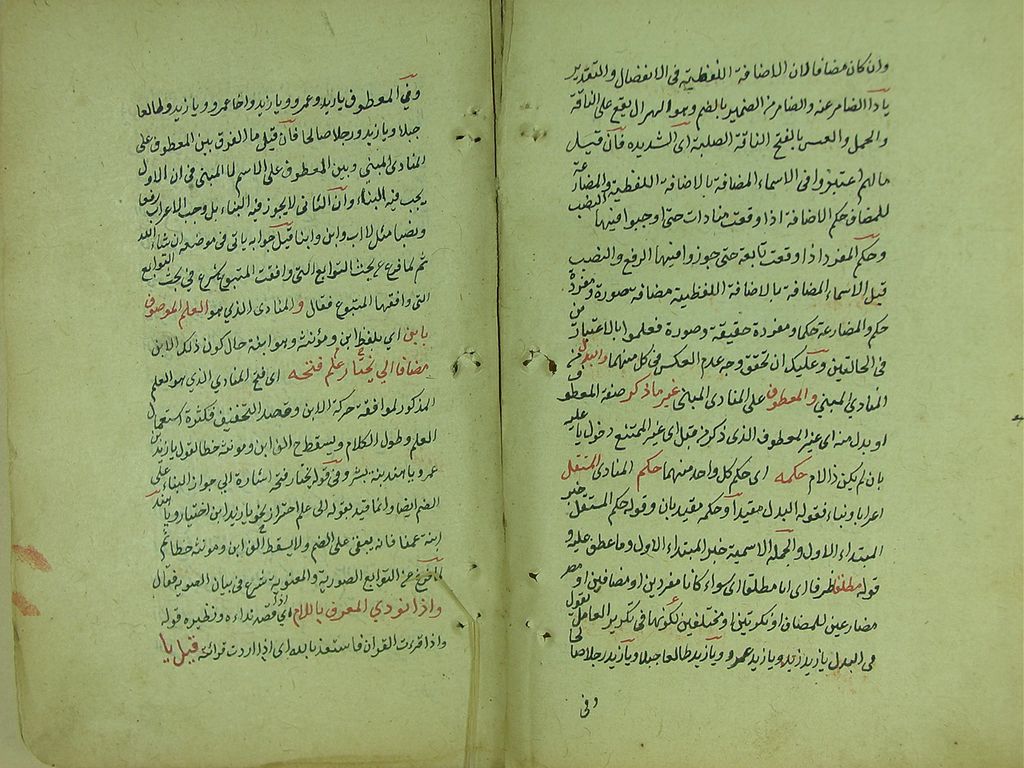 وان كان مضافا لان الاضافة اللفظية في الانفصال والتقدير
يا ذا الضامر عنه والضامر من الضمير بالضم وهو الهزال يقع على الناقة
والجمل والعنس بالفتح الناقة الصلبة اى الشديده فان قيل
ما لهم اعتبروا في الاسماء المضافة بالاضافة اللفظية والمضارعة
للمضاف حكم الاضافة اذا وقعت منادات حتى اوجبوا فيها النصب
وحكم المفرد اذا وقعت تابعة حتى جوزوا فيها الرفع والنصب
قيل الاسماء المضافة بالاضافة اللفظية مضافة صورة ومفردة
حكم والمضارعة حكما ومفردة حقيقة وصورة فعلموا بالاعتبارين
في الحالتين وعليك ان تحقق وجه عدم العكس في كل منهما والبدل من
المنادى المبني والمعطوف على المنادى المبنى غير ما ذكر صفة المعطوف
او بدل منه اى غير المعطوف الذى ذكر من قبل اى غير الممتنع دخول يا عليه
بان لم يكن ذا لام حكمه اى حكم كل واحد منهما حكم المنادى المستقل
اعرابا وبناء فقوله البدل مقيدا وحكمه مقيد بان وقوله حكم المستقل خبر
المبتداء الاول والجملة الاسمية خبر المبتداء الاول وما عطف عليه و
قوله مطلقا ظرف اى اما مطلقا اى سواء كانا مفردين او مضافين او
مضارعين للمضاف او نكرتين او مختلفين لكونها في تكرير العامل تقول
في البدل يا زيد زيد ويا زيد عمرو ويا زيد طالعا جبلا ويا زيد رجلا صالحا
وفي
وفي المعطوف يا زيد وعمرو ويا زيد واخا عمرو ويا زيد وطالعا
جبلا ويا زيد ورجلا صالحا فان قيل ما الفرق بين المعطوف على
المنادى المبنى وبين المعطوف على الاسم لا المبنى في ان الاول
يجب فيه البناء وان الثانى لا يجوز فيه البناء بل وجب الاعراب رفعا
ونصبا مثل لا اب وابن وابنا قيل جوابه ياتى في موضعه ان شاء الله
ثم لما فرغ عن بحث التوابع التى وافقت المتبوع شرع في بحث التوابع
التى وافقها المتبوع فقال والمنادى الذي هو العلم الموصوف
بابن اى بلفظ ابن ومؤنثه وهو ابنة حال كون ذلك الابن
مضافا الي علم يختار فتحه اى فتح المنادى الذي هو العلم
المذكور لموافقة حركة الابن وقصد التخفيف فكثرة استعمال
العلم وطول الكلام ويسقط ح الف ابن ومونثه خطا تقول يا زيد بن
عمرو ويا هند بنة بشر وفي قوله يختار فتحه اشارة الى جواز البناء على
الضم ايضا وانما قيد بقوله الى علم احتراز نحو يا زيد ابن اختيار ويا هند
ابنة عمنا فانه يبقى على الضم ولا يسقط الف ابن ومونثه خطا ثم
لما فرغ عن التوابع الصورية والمعنوية شرع في بيان الصور فقال
واذا نودي المعرف باللام اى اذا قصد نداءه ونظيره قوله
واذا قرءت القران فاستعذ بالله اى اذا اردت قرائة قيل يا